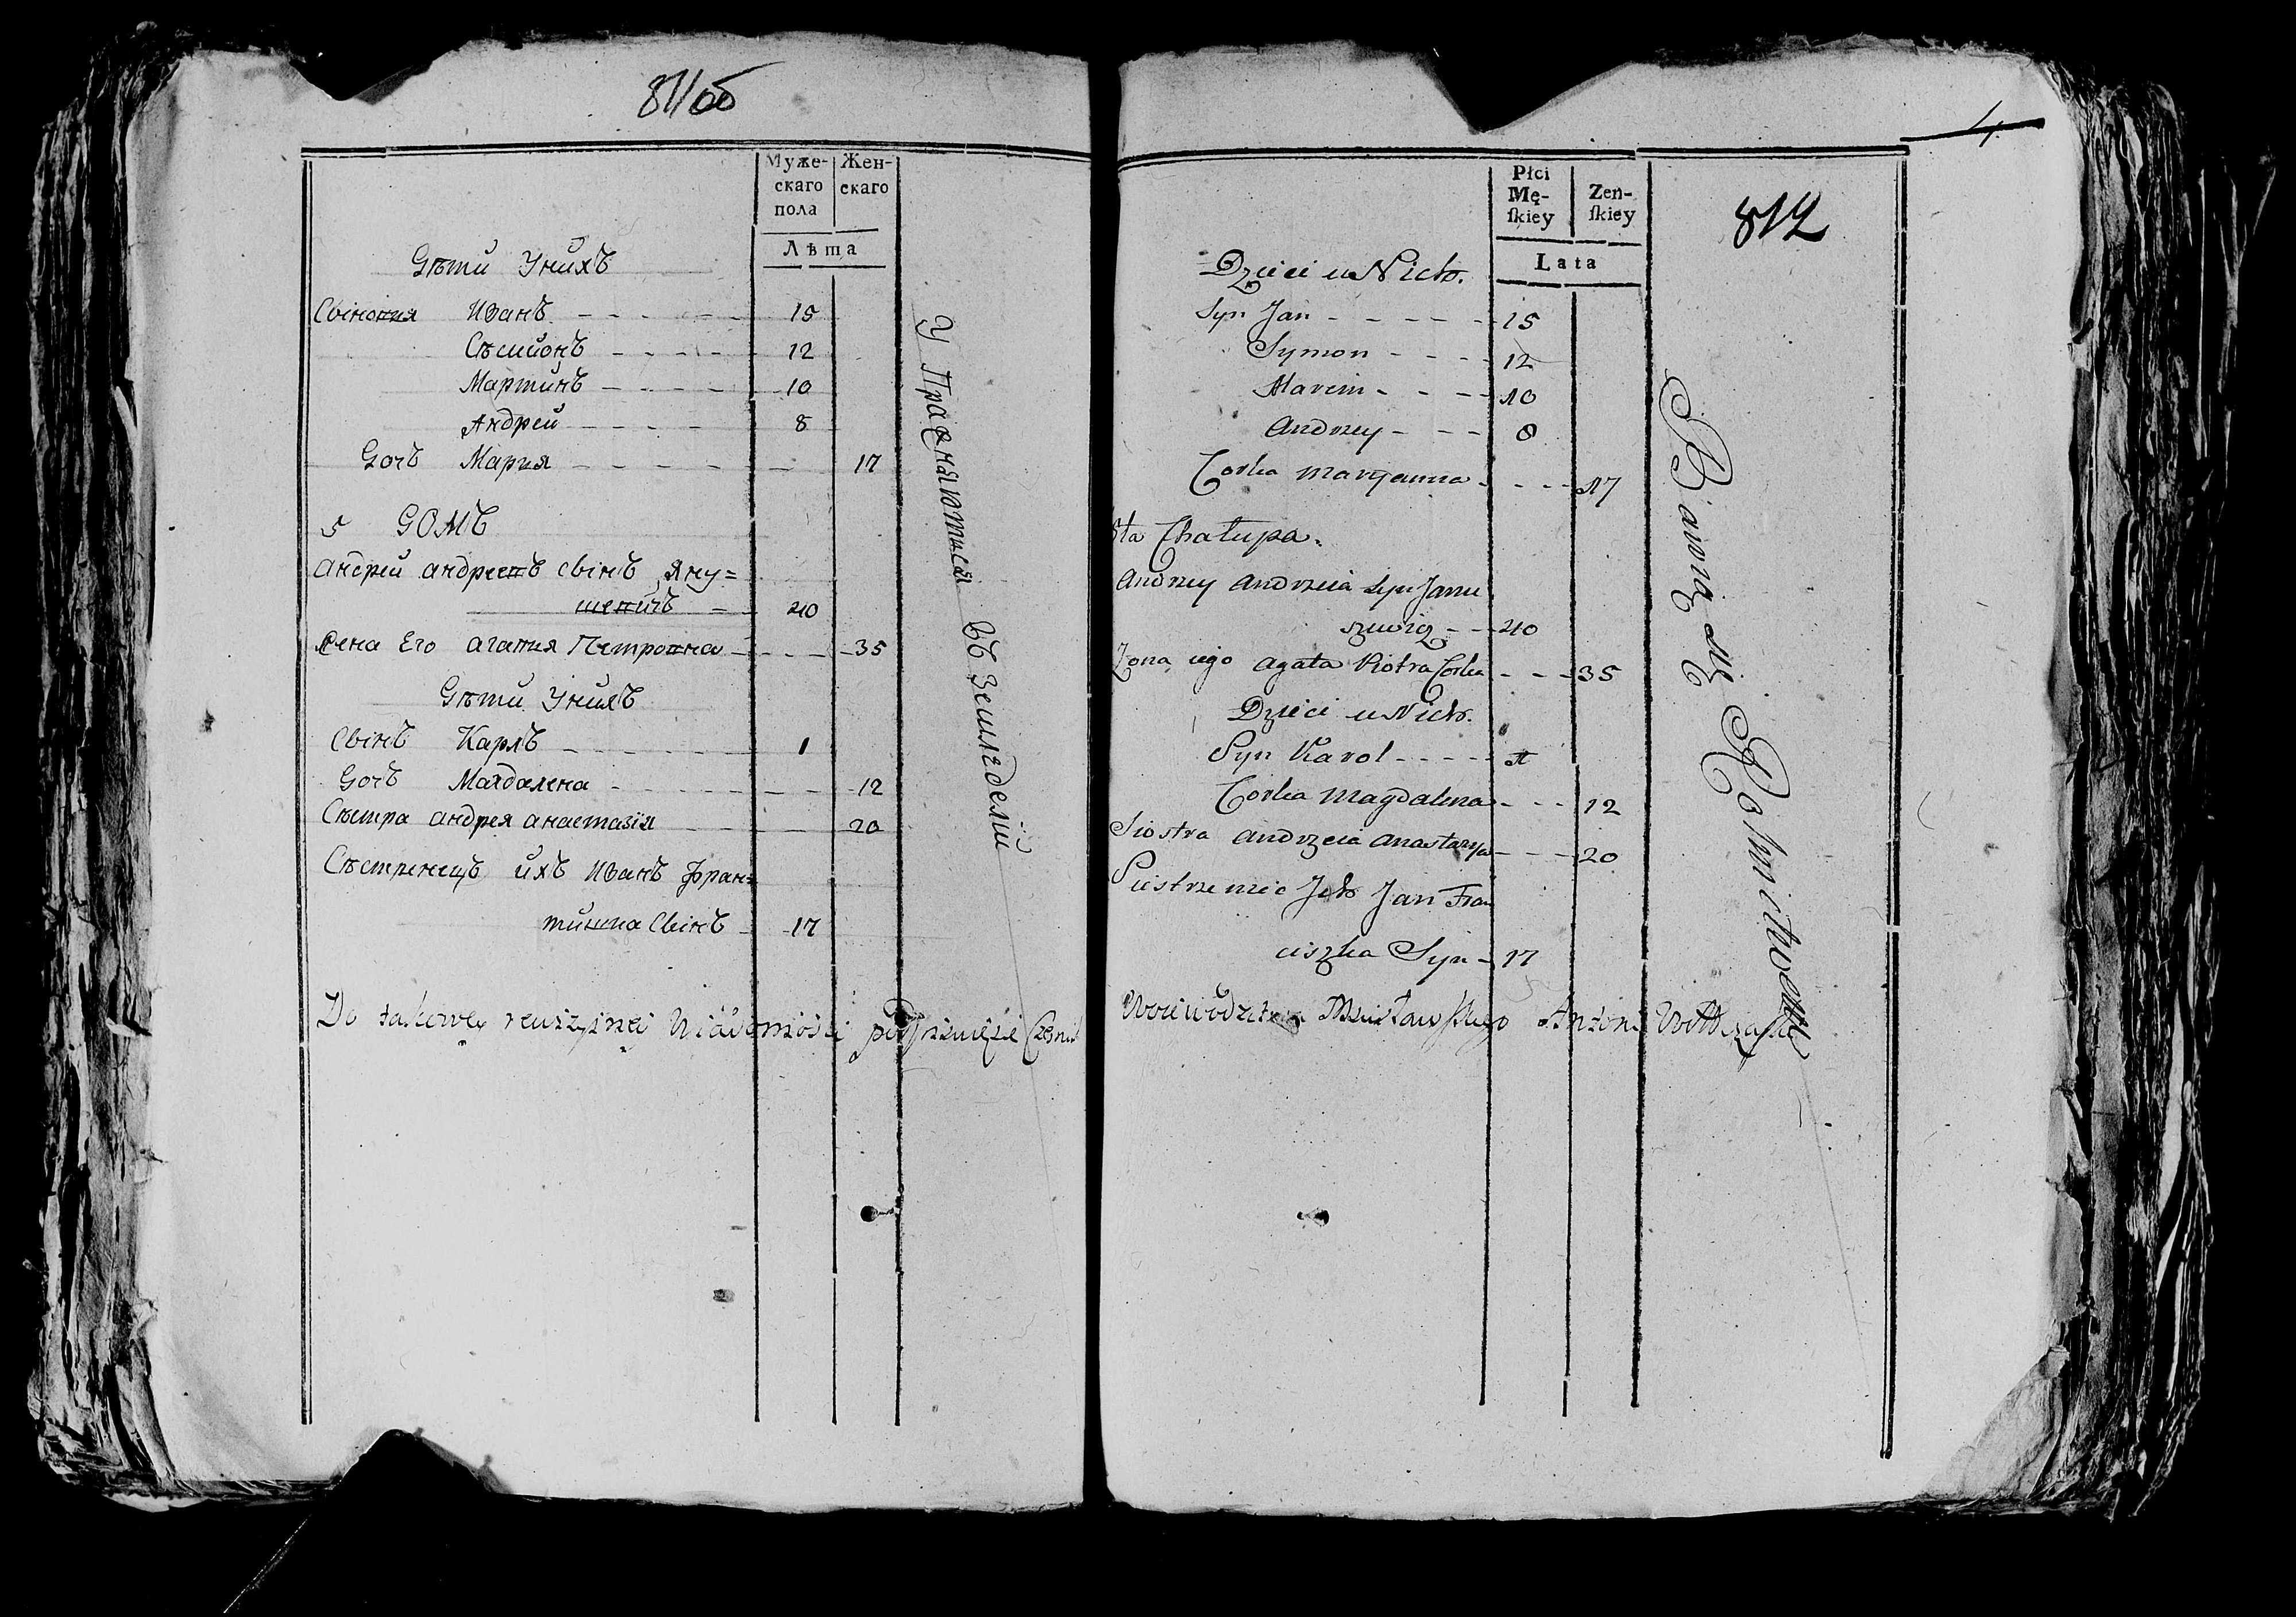 811об
Муже-
скаго
пола
Жен-
скаго
Лѣта
Дѣти Унихъ
Свіновия Иванъ 15
Сѣмионъ 12
Мартинъ 10
Андрей 8
Дочъ Мария 17
5 ДОМЪ
Андрей андреевъ свінъ Яну=
шевичъ 40
Жена Его агапия Петровна 35
Дѣти Унихъ
Свінъ Карлъ 1
Дочъ Магдалена 12
Сѣстра андрея анастазія 20
Сѣстренецъ ихъ Иванъ Фран=
тишка Свінъ 17
Упражняютися въ Земледелии
Do takowey rewizyinei Wiadomości
4
812
Płci
Mę-
ſkiey
Zeń-
ſkiey
Lata
Dzieci u Nich.
Syn Jan 15
Symon 12
Marcin 10
Andrzey 8
Corka Maryanna 17
5ta Chałupa.
Andrzey Andrzeia Syn Janu
szewicz 40
Zona iego Agata Piotra Corka 35
Dzieci u Nich.
Syn Karol 1
Corka Magdalena 12
Siostra Andrzeia Anastazya 20
Siestrzeniec Ich Jan Fran
ciszka Syn 17
Bawią się Rolnictwem
Woiewodztwa Mscisławskiego Antoni